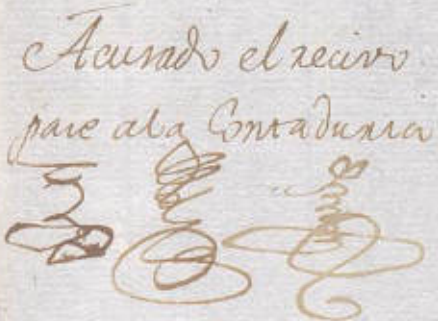 Acusado el recivo
pase ala Contaduria